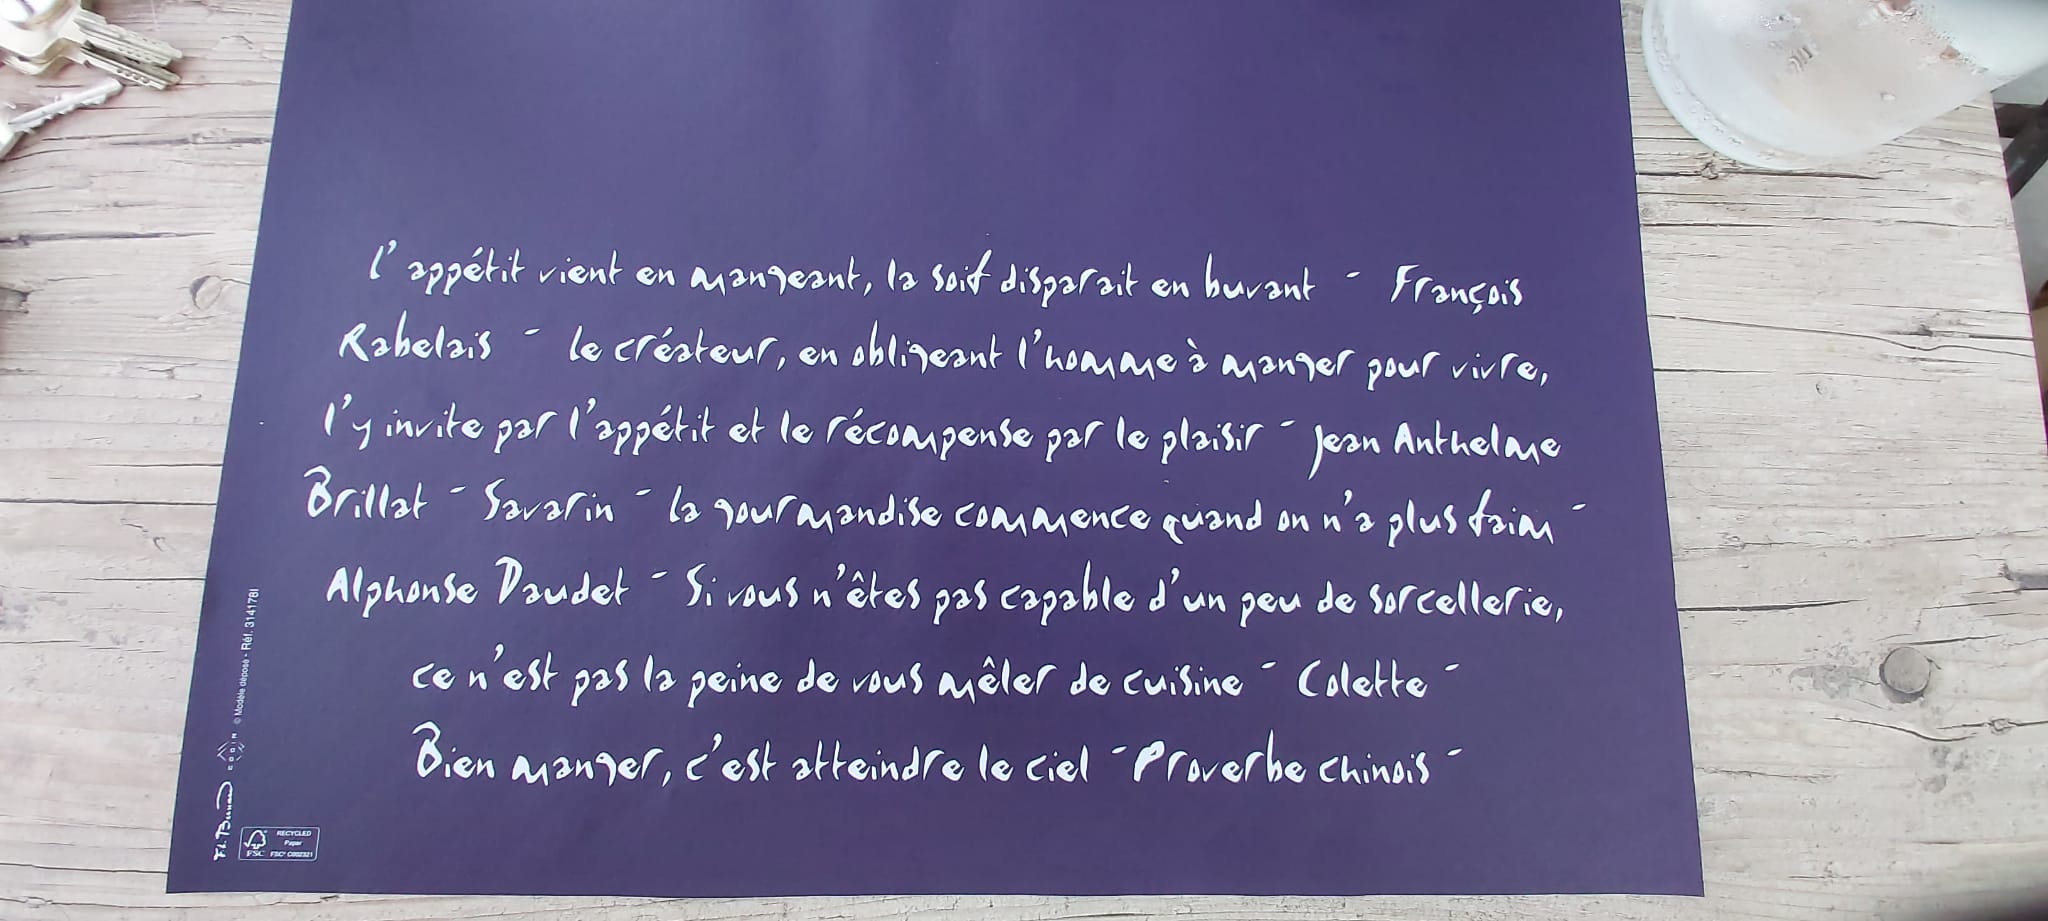 l'appétit vient en mangeant, la soif disparait en buvant - François
Rabelais - le créateur, en obligeant l'homme à manger pour vivre,
l'y invite par l'appétit et le récompense par le plaisir - Jean Anthelme
Brillat - Savarin - la gourmandise commence quand on n'a plus faim -
Alphonse Daudet - Si vous n'êtes pas capable d'un peu de sorcellerie,
ce n'est pas la peine de vous mêler de cuisine - Colette -
Bien manger, c'est atteindre le ciel - Proverbe chinois -
© Modèle déposé - Réf. 314178I
RECYCLED
Paper
FSC FSC® C002321